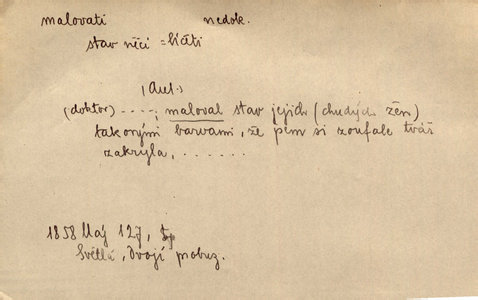 malovati nedok.
stav něčí = líčiti
(Aut.)
(doktor) ....; maloval stav jejich (chudých žen)
takovými barvami, že plm si zoufale tvář
zakryla, ......
1858 Máj 127,
Světlá, Dvojí probuz.